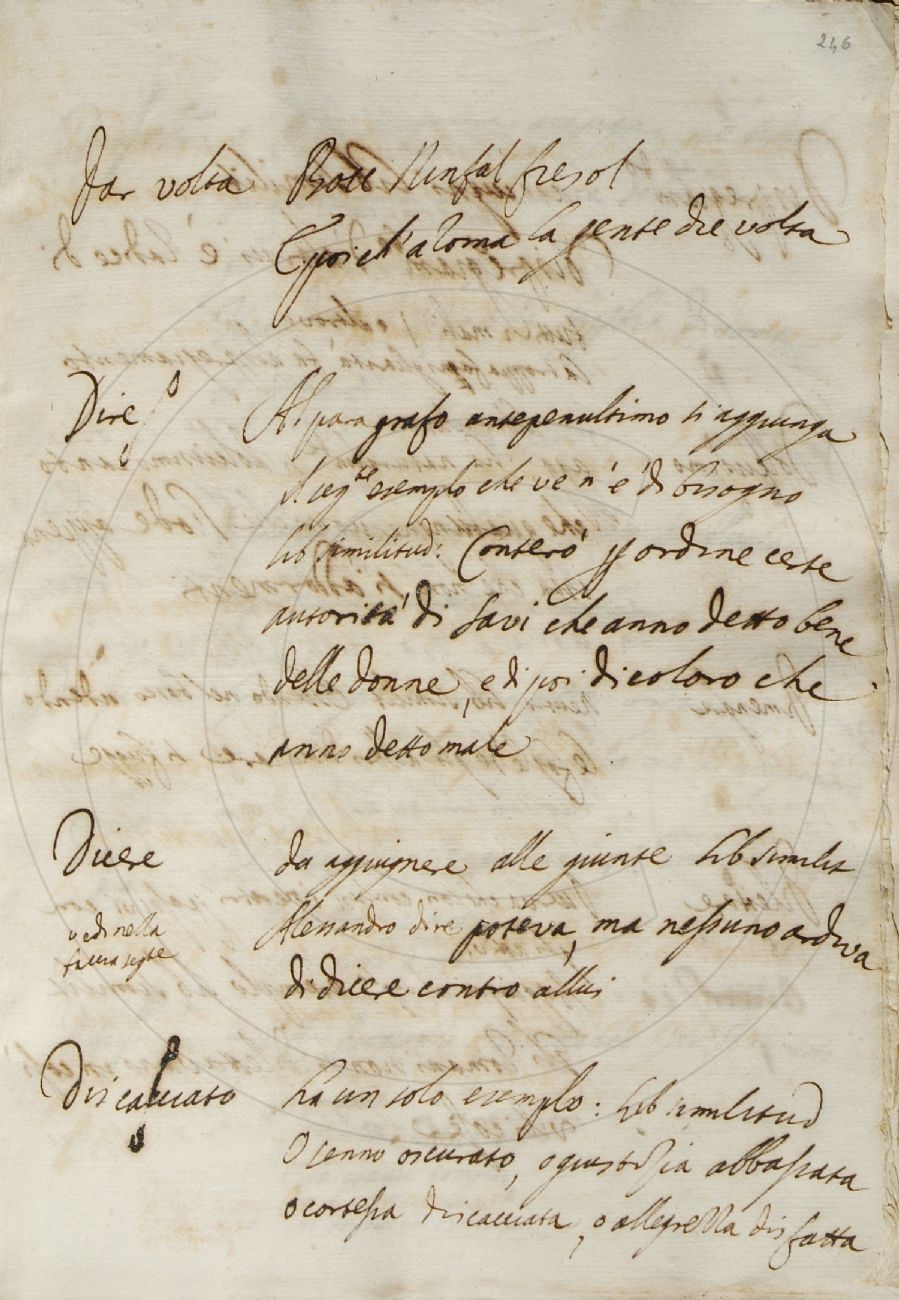 246
Dar volta Bocc Ninfal fiesol
E poich' a Roma la gente die volta
Dire Al paragrafo antepenultimo si aggiunga
il seg.te esemplo che ve n'è di bisogno
lib. similitud: Conterò p ordine certe
autorità di savi che anno detto bene
delle donne, e di poi di coloro che
anno detto male
Dicere da aggiugnere alle giunte Lib similit
vedi nella Alessandro dire poteva, ma nessuno ardiva
faccia segte di dicere contro allui
Discacciato ha un solo esemplo: Lib similitud
O senno oscurato, o giustizia abbassata
o cortesia discacciata, o allegrezza disfatta